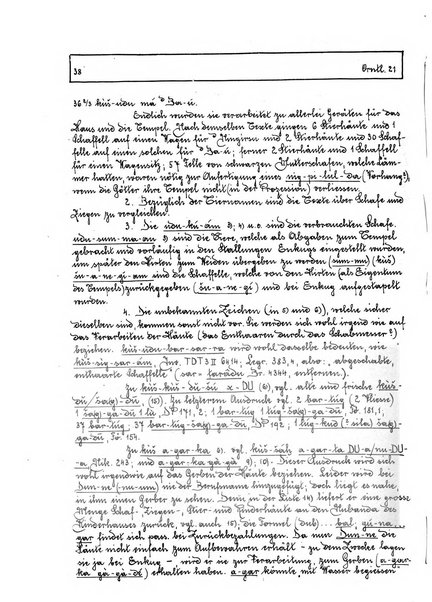 38 Orntl. 21
36 2/3 kuš-udu má d Ba-ú.
Endlich wurden sie verarbeitet zu allerlei Geräten für das
Haus und die Tempel. Nach demselben Texte gingen 6 Stierhäute und 1
Schaffell auf einen Wagen für und 2 Stierhäute und 30 Schaf-
felle auf einen solchen für d Ba-ú; ferner 2 Stierhäute und 1 Schaffell
für einen Wagensitz; 57 Felle von schwarzen Mutterschafen, welche Läm-
mer hatten, waren nötig zur Anfertigung eines (Vorhang?),
wenn die Götter ihre Tempel nicht (in der Prozession) verliessen.
2. Bezüglich der Tiernamen sind die Texte über Schafe und
Ziegen zu vergleichen.
3. Die udu-kú-am 3; 4) u.o. sind die verbrauchten Schafe.
udu-sum-ma-am 5) sind die Tiere, welche als Abgaben zum Tempel
gebracht und vorläufig in den Stallungen Enkugs eingestellt wurden,
um später den Hirten zum Weiden übergeben zu werden (sum-mu) (kuš)
šu-a-ne-gi-am sind die Schaffelle, welche von den Hirten (als Eigentum
des Tempels) zurückgegeben (šu-a-ne-gi) und bei Enkug aufgestapelt
wurden.
4. Die unbekannten Zeichen (in 5) und 6), welche sicher
dieselben sind, kommen sonst nicht vor. Sie werden sich wohl irgend wie auf
das Verarbeiten der Häute (das Enthaaren durch das Schabmesser?)
beziehen. kuš-udu-bar-sar-ra wird wohl dasselbe bedeuten, wie
kuš-sig-sar-am, Inv. TDT 3 II 6414, Legr. 383,4, also: abgeschabte,
enthaarte Schaffelle (sar = Br. 4344, entfernen).
Zu kuš x-DU (6), vgl. alte und frische kuš-
(15). Zu letzterem Ausdruck vgl. 2 bar-lug (2 Vliese)
1 DP 171,2; 1 bar-lug 1181,1;
37 bar-lug DP 192; 1 lug-kud
154.
Zu kuš a-gar-ka 6), vgl. kuš-šáh a-gar-ta DU-a/nu-DU-
a Nik. 243; und a-gar-ka gà-gà 9); 19). Dieser Ausdruck wird sich
wohl irgendwie auf das Gerben der Häute beziehen. Leider wird bei
Dun-ne (-mu-mu) nie der Berufsname hinzugefügt, doch liegt es nahe,
in ihm einen Gerber zu sehen. Denn in der Liste 14) liefert er eine grosse
Menge Schaf-, Ziegen-, Stier- und Rinderhäute an den Nubanda des
Rinderhauses zurück, vgl. auch 15); die Formel (dub) ... bal; gú-na
gar findet sich bei Zurückbezahlungen. Da nun Dun-ne die
Häute nicht einfach zum Aufbewahren erhält – zu dem Zwecke lagen
sie ja bei Enkug –, wird er sie zur Verarbeitung, zum Gerben (a-gar-
ka gà-gà-dè) erhalten haben. a-gar könnte mit Wasser begiessen